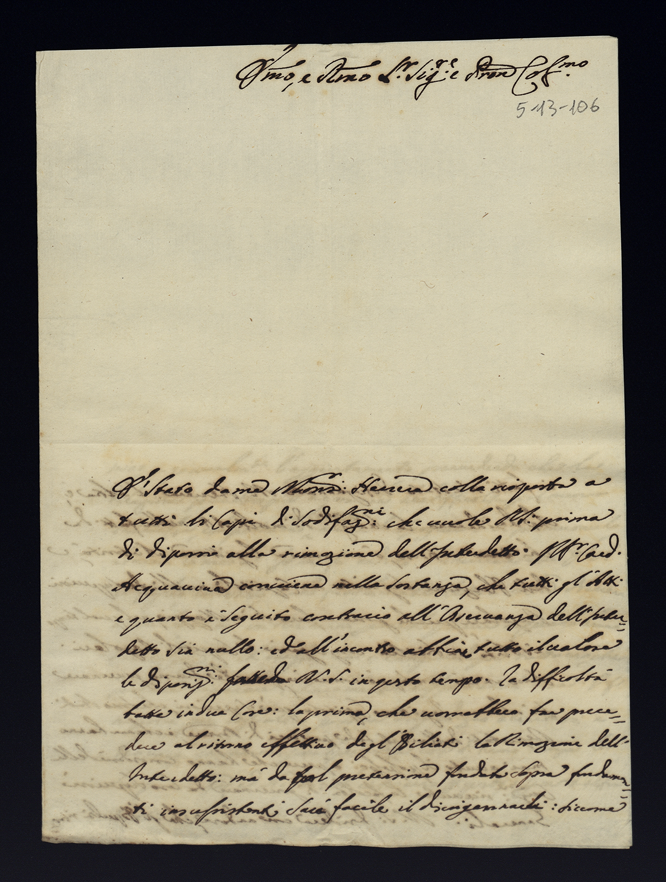 Ill.mo, e R.mo S.r Sig.re e Pron Col.mo
5-13-106
E' Stato da me Mons.r Herrera colla risposta a
tutti li Capi di Sodisfaz.ni: che vuole N.S. prima
di disporsi alla rimozione dell'Interdetto. Il Sr. Card.
Acquaviva conviene nella Sostanza, che tutti gl'Atti
e quanto è Seguito contrario all'Osservanza dell'Inter=
detto Sia nullo: ed all'incontro abbia tutto il valore
le disposiz.ni fatte da N.S. in questo tempo. La difficoltà
batte in due Cose: la prima, che vorrebbe far prece=
dere al ritorno effettivo degl'Esiliati la Rimozione dell'
Interdetto: mà da tal pretensione fondata Sopra fondamen=
ti insussistenti Sarà facile il disingannarli: Siccome